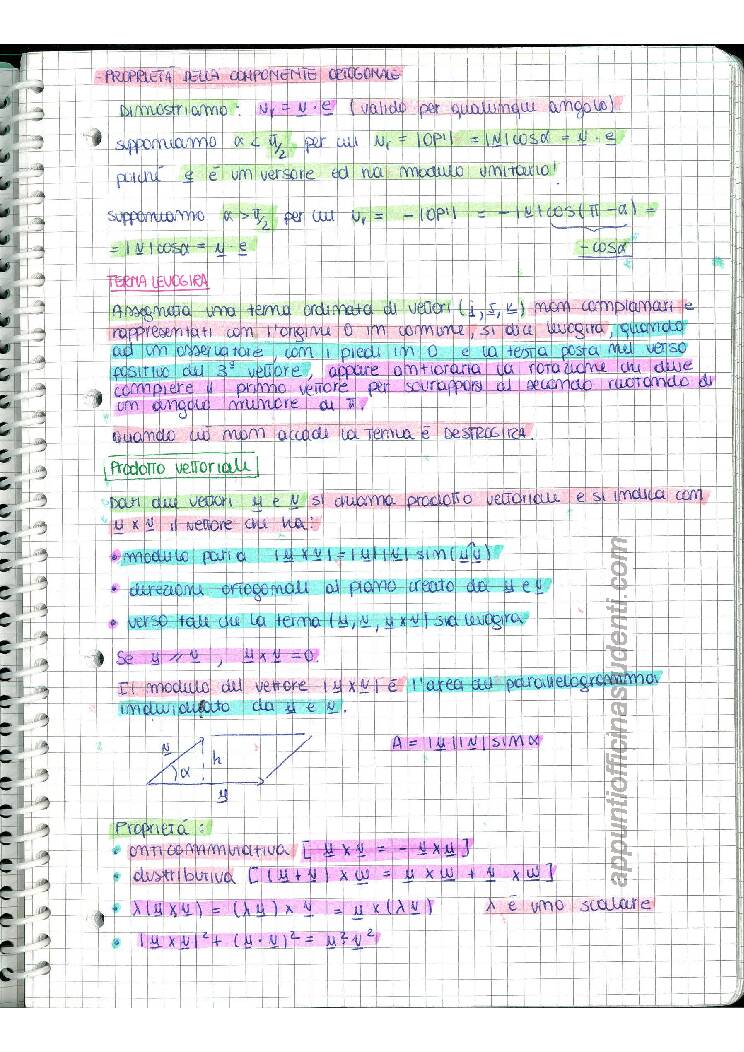 - PROPRIETÀ DELLA COMPONENTE ORTOGONALE
Dimostriamo: vr = v · e (valido per qualunque angolo)
supponiamo α < π/2 per cui vr = |OP'| = |v| cosα = v · e
poiché e è un versore ed ha modulo unitario!
supponiamo α > π/2 per cui vr = - |OP'| = - |v| cos(π - α) =
= |v| cosα = v · e
- cosα
TERNA LEVOGIRA
Assegnata una terna ordinata di vettori (i, j, k) non complanari e
rappresentati con l'origine O in comune, si dice levogira, quando
ad un osservatore, con i piedi in O e la testa posta nel verso
positivo del 3° vettore, appare antioraria la rotazione che deve
compiere il primo vettore per sovrapporsi al secondo ruotando di
un angolo minore di π.
Quando ciò non accade la terna è DESTROGIRA.
Prodotto vettoriale
Dati due vettori u e v si chiama prodotto vettoriale e si indica con
u × v il vettore che ha:
• modulo pari a |u × v| = |u| |v| sin(uv)
• direzione ortogonale al piano creato da u e v
• verso tale che la terna (u, v, u × v) sia levogira
Se u // v, u × v = 0.
Il modulo del vettore |u × v| è l'area del parallelogramma
individuato da u e v.
v
h
α
u
A = |u| |v| sin α
Proprietà:
• anticommutativa [u × v = - v × u]
• distributiva [(u + v) × w = u × w + v × w]
• λ(u × v) = (λu) × v = u × (λv) λ è uno scalare
• |u × v|² + (u · v)² = u² · v²
appuntiofficinastudenti.com